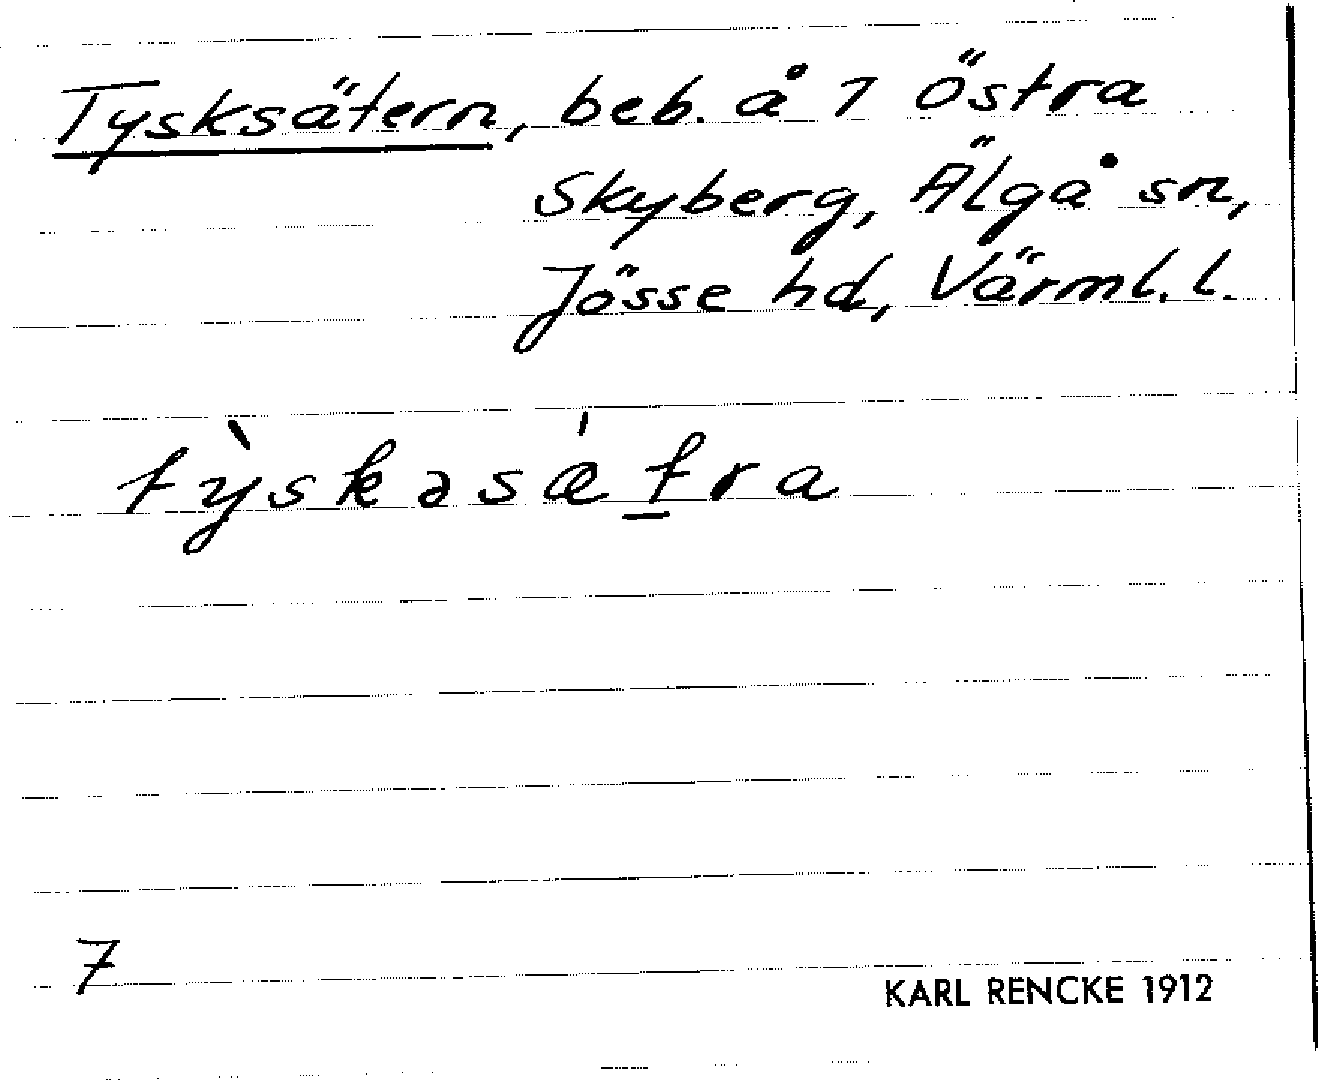 Tysksätern, beb. å 1 Östra
Skyberg, Älgå sn,
Jösse hd, Värml. l.
tỳskəsæ̍t̠ra
7
KARL RENCKE 1912